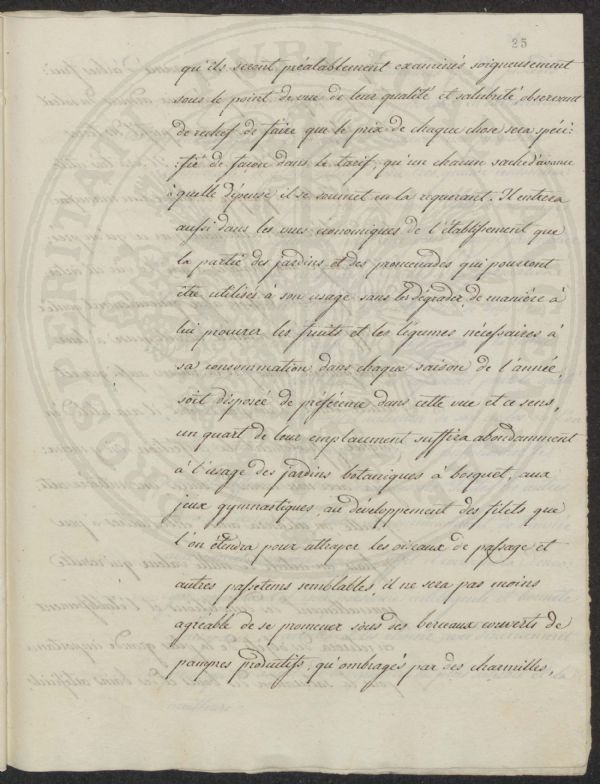 25
qu'ils seront préalablement examinés soigneusement
sous le point de vue de leur qualité et salubrité, observant
de rechef de faire que le prix de chaque chose sera spéci:
:fié de façon dans le tarif, qu'un chacun sache d'avance
à quelle dépense il se soumet en la requerant. Il entrera
aussi dans les vues économiques de l'établissement que
la partie des jardins et des promenades qui pourront
être utilisés à son usage sans les dégrader, de manière à
lui procurer les fruits et les légumes nécessaires à
sa consommation dans chaque saison de l'année,
soit disposée de préférence dans cette vue et ce sens,
un quart de leur emplacement suffira abondamment
à l'usage des jardins botaniques à bosquet, aux
jeux gymnastiques, au développement des filets que
l'on étendra pour attraper les oiseaux de passage et
autres passetems semblables, il ne sera pas moins
agréable de se promener sous des berceaux couverts de
pampres productifs, qu'ombragés par des charmilles,